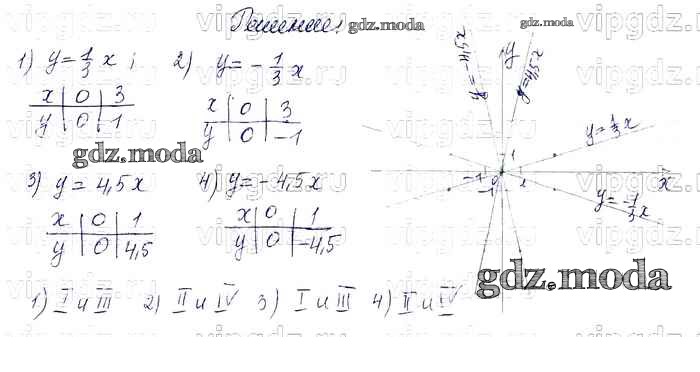 Решение:
1) y = 1/3 x ; 2) y = - 1/3 x
x | 0 | 3
y | 0 | 1
x | 0 | 3
y | 0 | -1
3) y = 4,5x 4) y = -4,5x
x | 0 | 1
y | 0 | 4,5
x | 0 | 1
y | 0 | -4,5
1) I и III 2) II и IV 3) I и III 4) II и IV
y = -4,5x
y
y = 4,5x
y = 1/3 x
1
-1 0 1 x
-1
y = -1/3 x
gdz.moda
gdz.moda
gdz.moda
gdz.moda
gdz.moda
vipgdz.ru